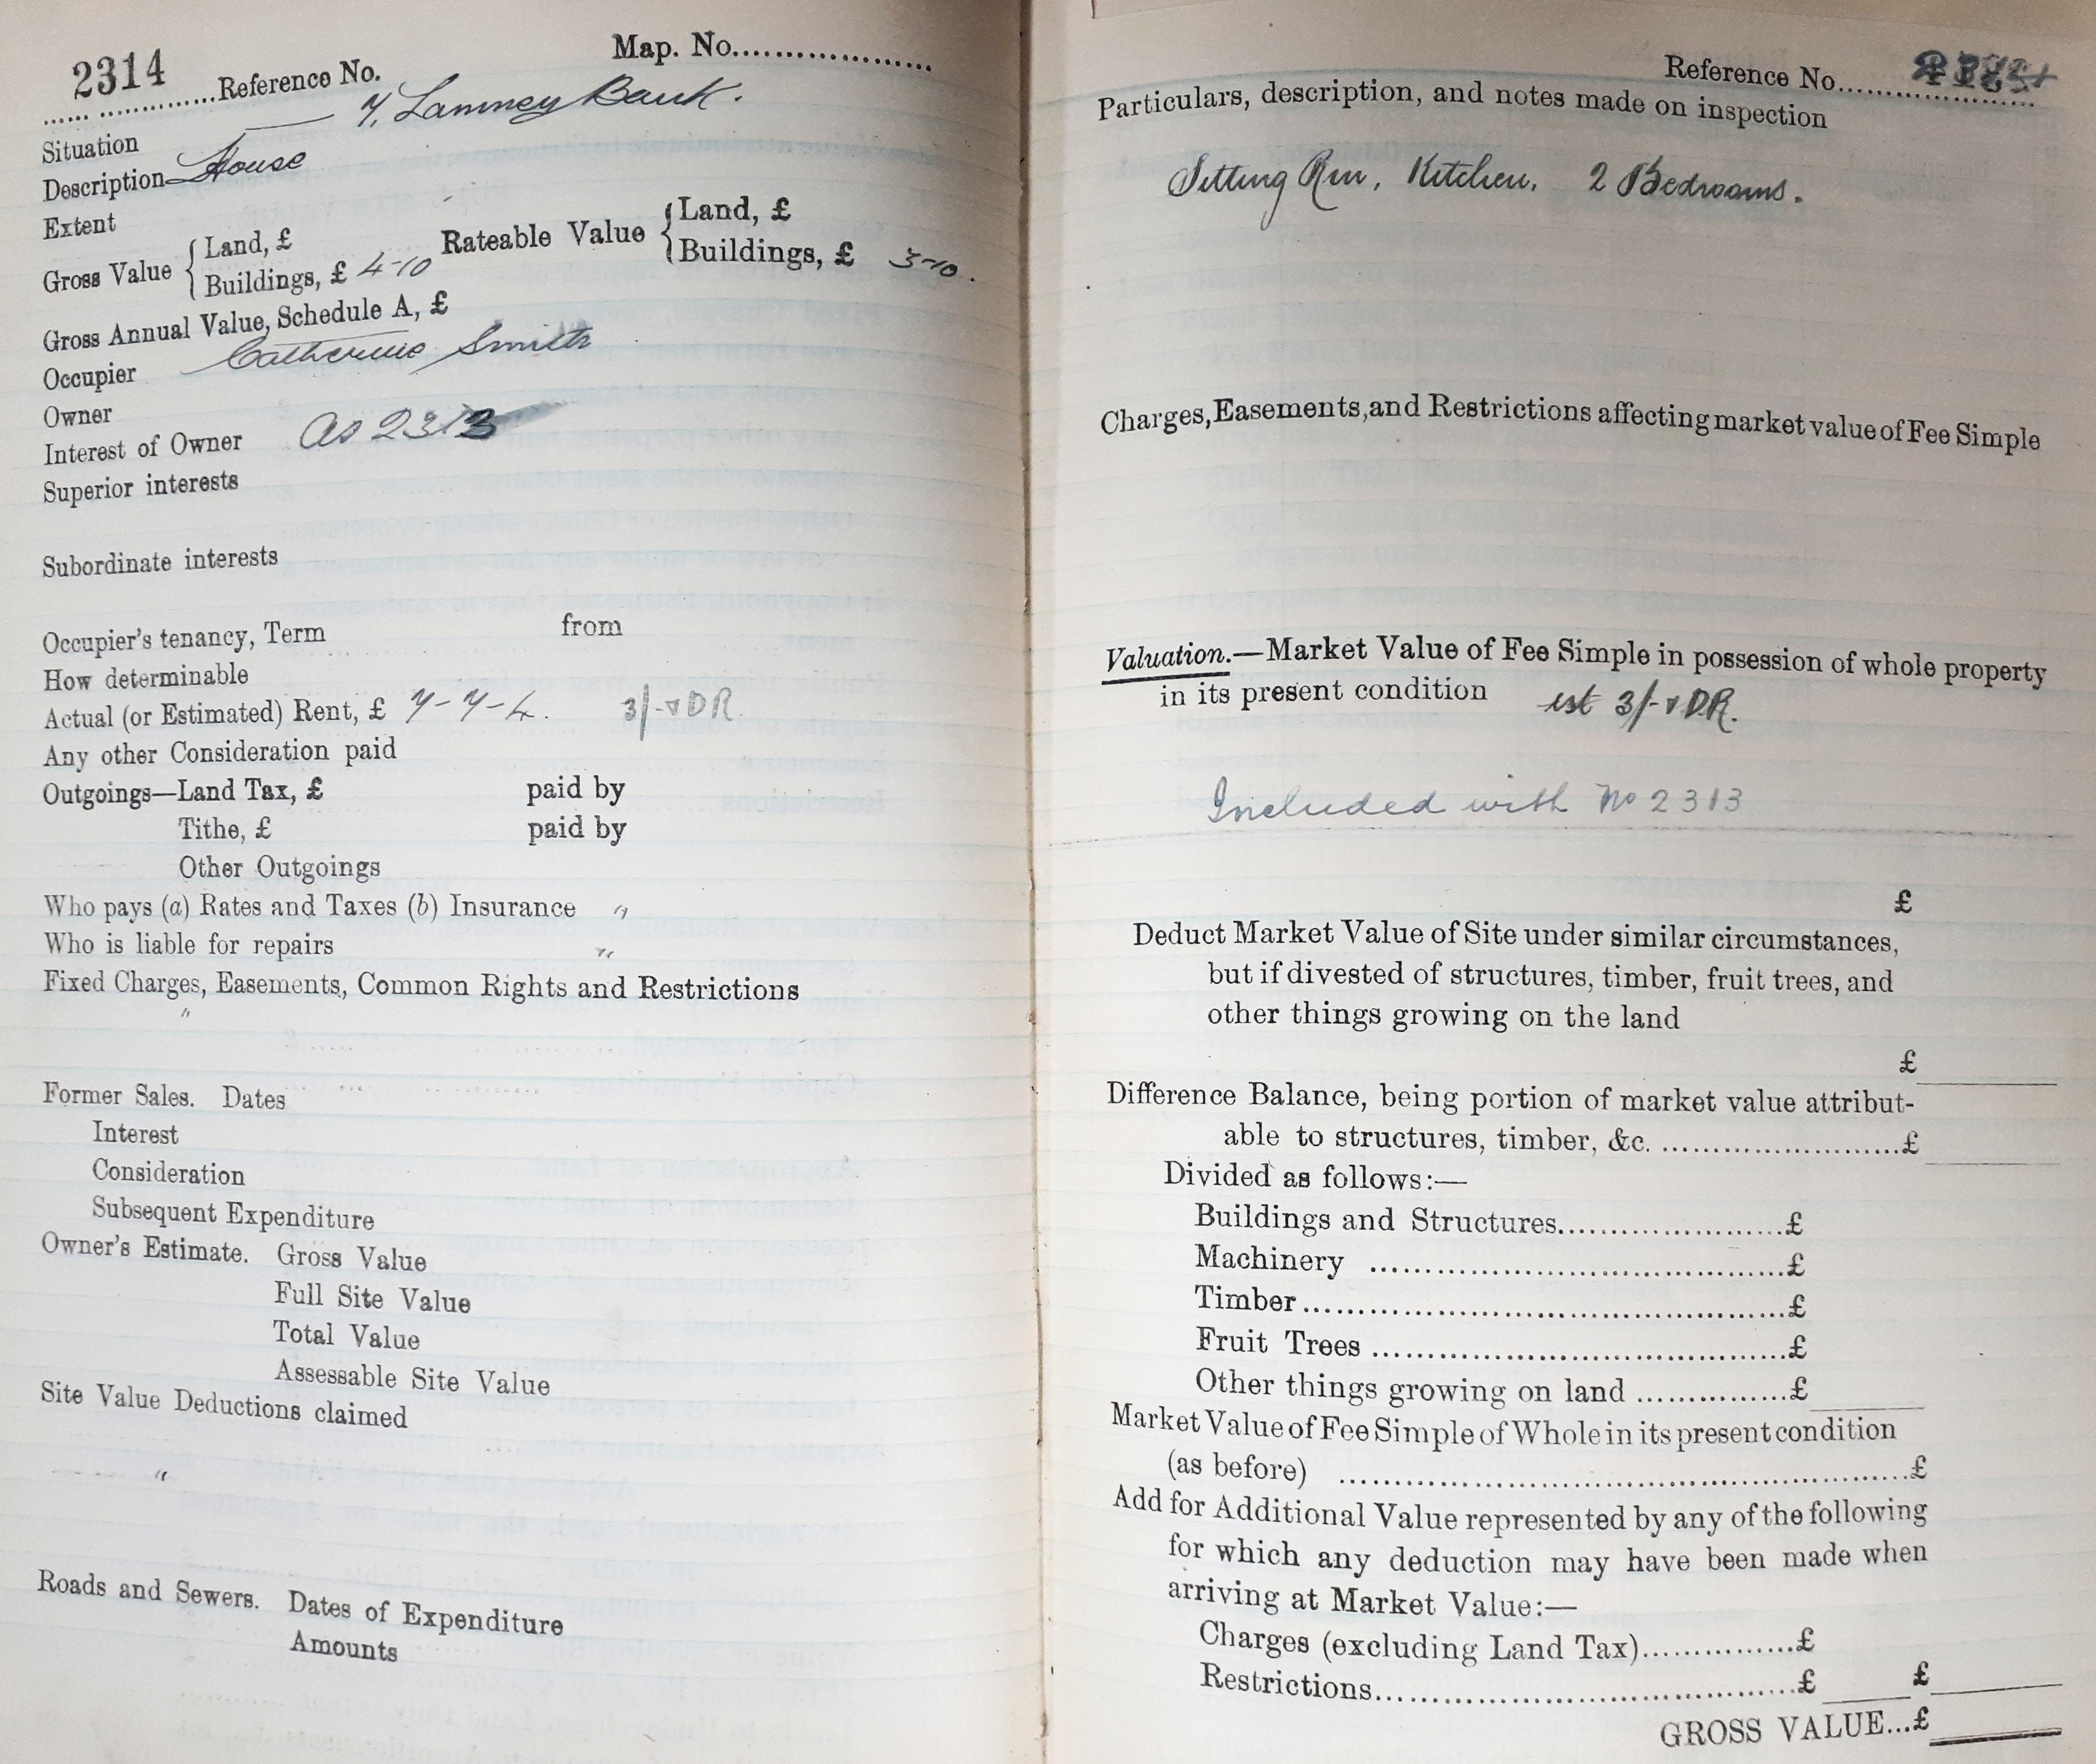 2314
Reference No.
Map. No.
Situation 7, Lamney Bank.
Description House
Extent
Gross Value { Land, £
Buildings, £ 4-10
Rateable Value { Land, £
Buildings, £ 3-10.
Gross Annual Value, Schedule A, £
Occupier Catherine Smith
Owner
Interest of Owner As 2313
Superior interests
Subordinate interests
Occupier's tenancy, Term from
How determinable
Actual (or Estimated) Rent, £ 7-7-4. 3/- & DR.
Any other Consideration paid
Outgoings—Land Tax, £ paid by
Tithe, £ paid by
Other Outgoings
Who pays (a) Rates and Taxes (b) Insurance "
Who is liable for repairs "
Fixed Charges, Easements, Common Rights and Restrictions
"
Former Sales. Dates
Interest
Consideration
Subsequent Expenditure
Owner's Estimate. Gross Value
Full Site Value
Total Value
Assessable Site Value
Site Value Deductions claimed
"
Roads and Sewers. Dates of Expenditure
Amounts
Reference No.
Particulars, description, and notes made on inspection
Sitting Rm, Kitchen, 2 Bedrooms.
Charges, Easements, and Restrictions affecting market value of Fee Simple
Valuation.—Market Value of Fee Simple in possession of whole property
in its present condition est 3/- & DR.
Included with No 2313
£
Deduct Market Value of Site under similar circumstances,
but if divested of structures, timber, fruit trees, and
other things growing on the land
£
Difference Balance, being portion of market value attribut-
able to structures, timber, &c. £
Divided as follows:—
Buildings and Structures £
Machinery £
Timber £
Fruit Trees £
Other things growing on land £
Market Value of Fee Simple of Whole in its present condition
(as before) £
Add for Additional Value represented by any of the following
for which any deduction may have been made when
arriving at Market Value:—
Charges (excluding Land Tax) £
Restrictions £ £
GROSS VALUE...£